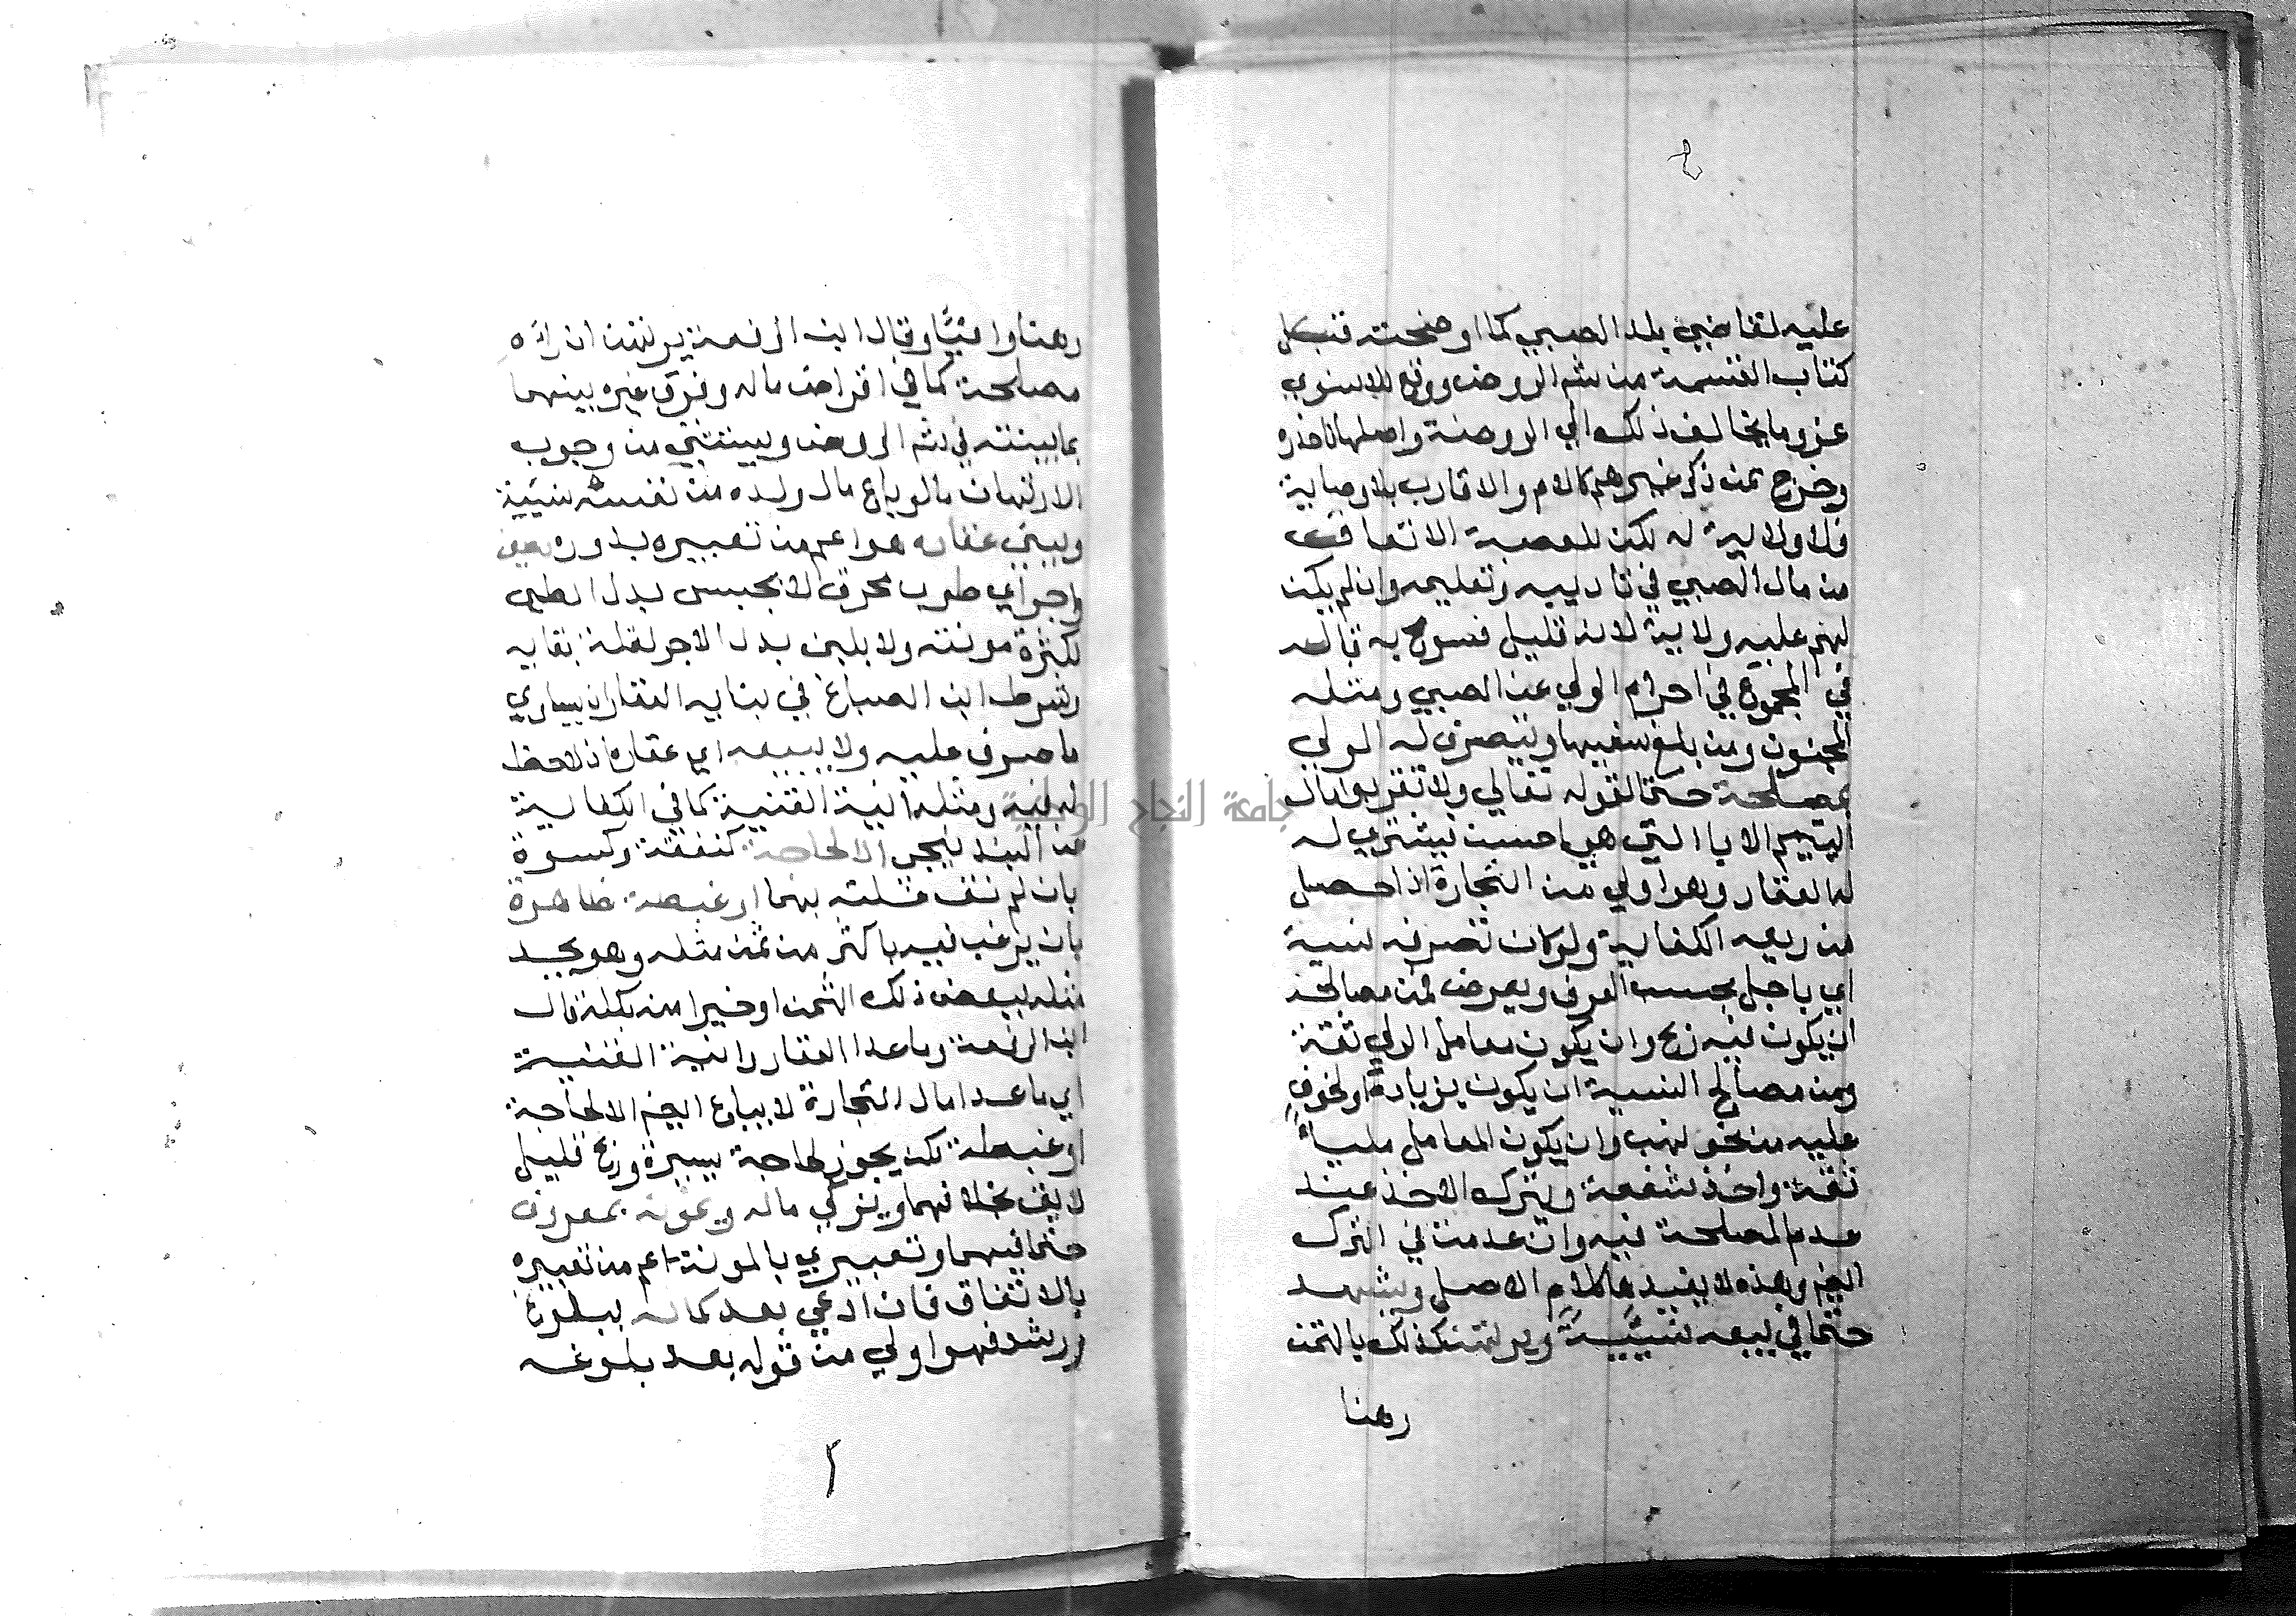 عليه لقاضي بلد الصبي كما اوضحته قبيل
كتاب القسمة من شرح الروض ووقع للاسنوي
عزو ما يخالف ذلك الي الروضة واصلها فاحذره
وخرج بمن ذكر غيرهم كالام والاقارب بلا وصاية
فلا ولاية له لكن للعصبة الانفاق
من مال الصبي في تاديبه وتعليمه وان لم يكن
لهم عليه ولاية لانه قليل فسومح به قاله
في المجموع في احرام الولي عن الصبي ومثله
المجنون ومن بلغ سفيها ويتصرف له الولي
بمصلحة حتما لقوله تعالي ولا تقربوا مال
اليتيم الا بالتي هي احسن فيشتري له
له العقار وهو اولي من التجارة اذا حصل
من ريعه الكفاية ولو كان تصرفه نسية
اي باجل بحسب العرف وبعرض فمن مصالحه
ان يكون فيه ربح وان يكون معامل الولي ثقة
ومن مصالح النسية ان يكون بزيادة او لخوف
عليه من نحو نهب وان يكون المعامل مليا
ثقة واخذ شفعة ويترك الاخذ عند
عدم المصلحة فيه وان عدمت في الترك
ايضم وهذه لا يفيدها كلام الاصل ويشهد
حتما في بيعه نسيية ويرتهن كذلك بالثمن
رهنا
رهنا وافيا وقال ابن الرفعة يرتهن ان راه
مصلحة كما في اقراض ماله وفرق غيره بينهما
بما بينته في شرح الروض ويستثني من وجوب
الارتهان ما لو باع مال ولده من نفسه نسيئة
ويبني عقاره هو اعم من تعبيره بدوره بطين
واجر اي طوب محرق لا بجبس بدل الطين
لكثرة مونته ولا بلبن بدل الاجر لقلة بقايه
وشرط ابن الصباغ في بنايه العقار ان يساوي
ما صرف عليه ولا يبيعه اي عقاره اذ لا حظ
له فيه ومثله انية القنية كما في الكفاية
عن البندنيجي الا لحاجة كنفقة وكسوة
بان لم تف غلته بهما او غبطة ظاهرة
بان يرغب فيه باكثر من ثمن مثله وهو يجد
مثله ببعض ذلك الثمن او خيرا منه بكله قال
ابن الرفعة وما عدا العقار وانية القنية
اي ما عدا مال التجارة لا يباع ايضم الا لحاجة
او غبطة لكن يجوز لحاجة يسيرة وربح قليل
لا يليق بخلافهما ويزكي ماله ويمونه بمعروف
حتما فيهما وتعبيري بالمونة اعم من تعبيره
بالانفاق فان ادعي بعد كماله ببلوغ
ورشد فهو اولي من قوله بعد بلوغه
جامعة النجاح الوطنية